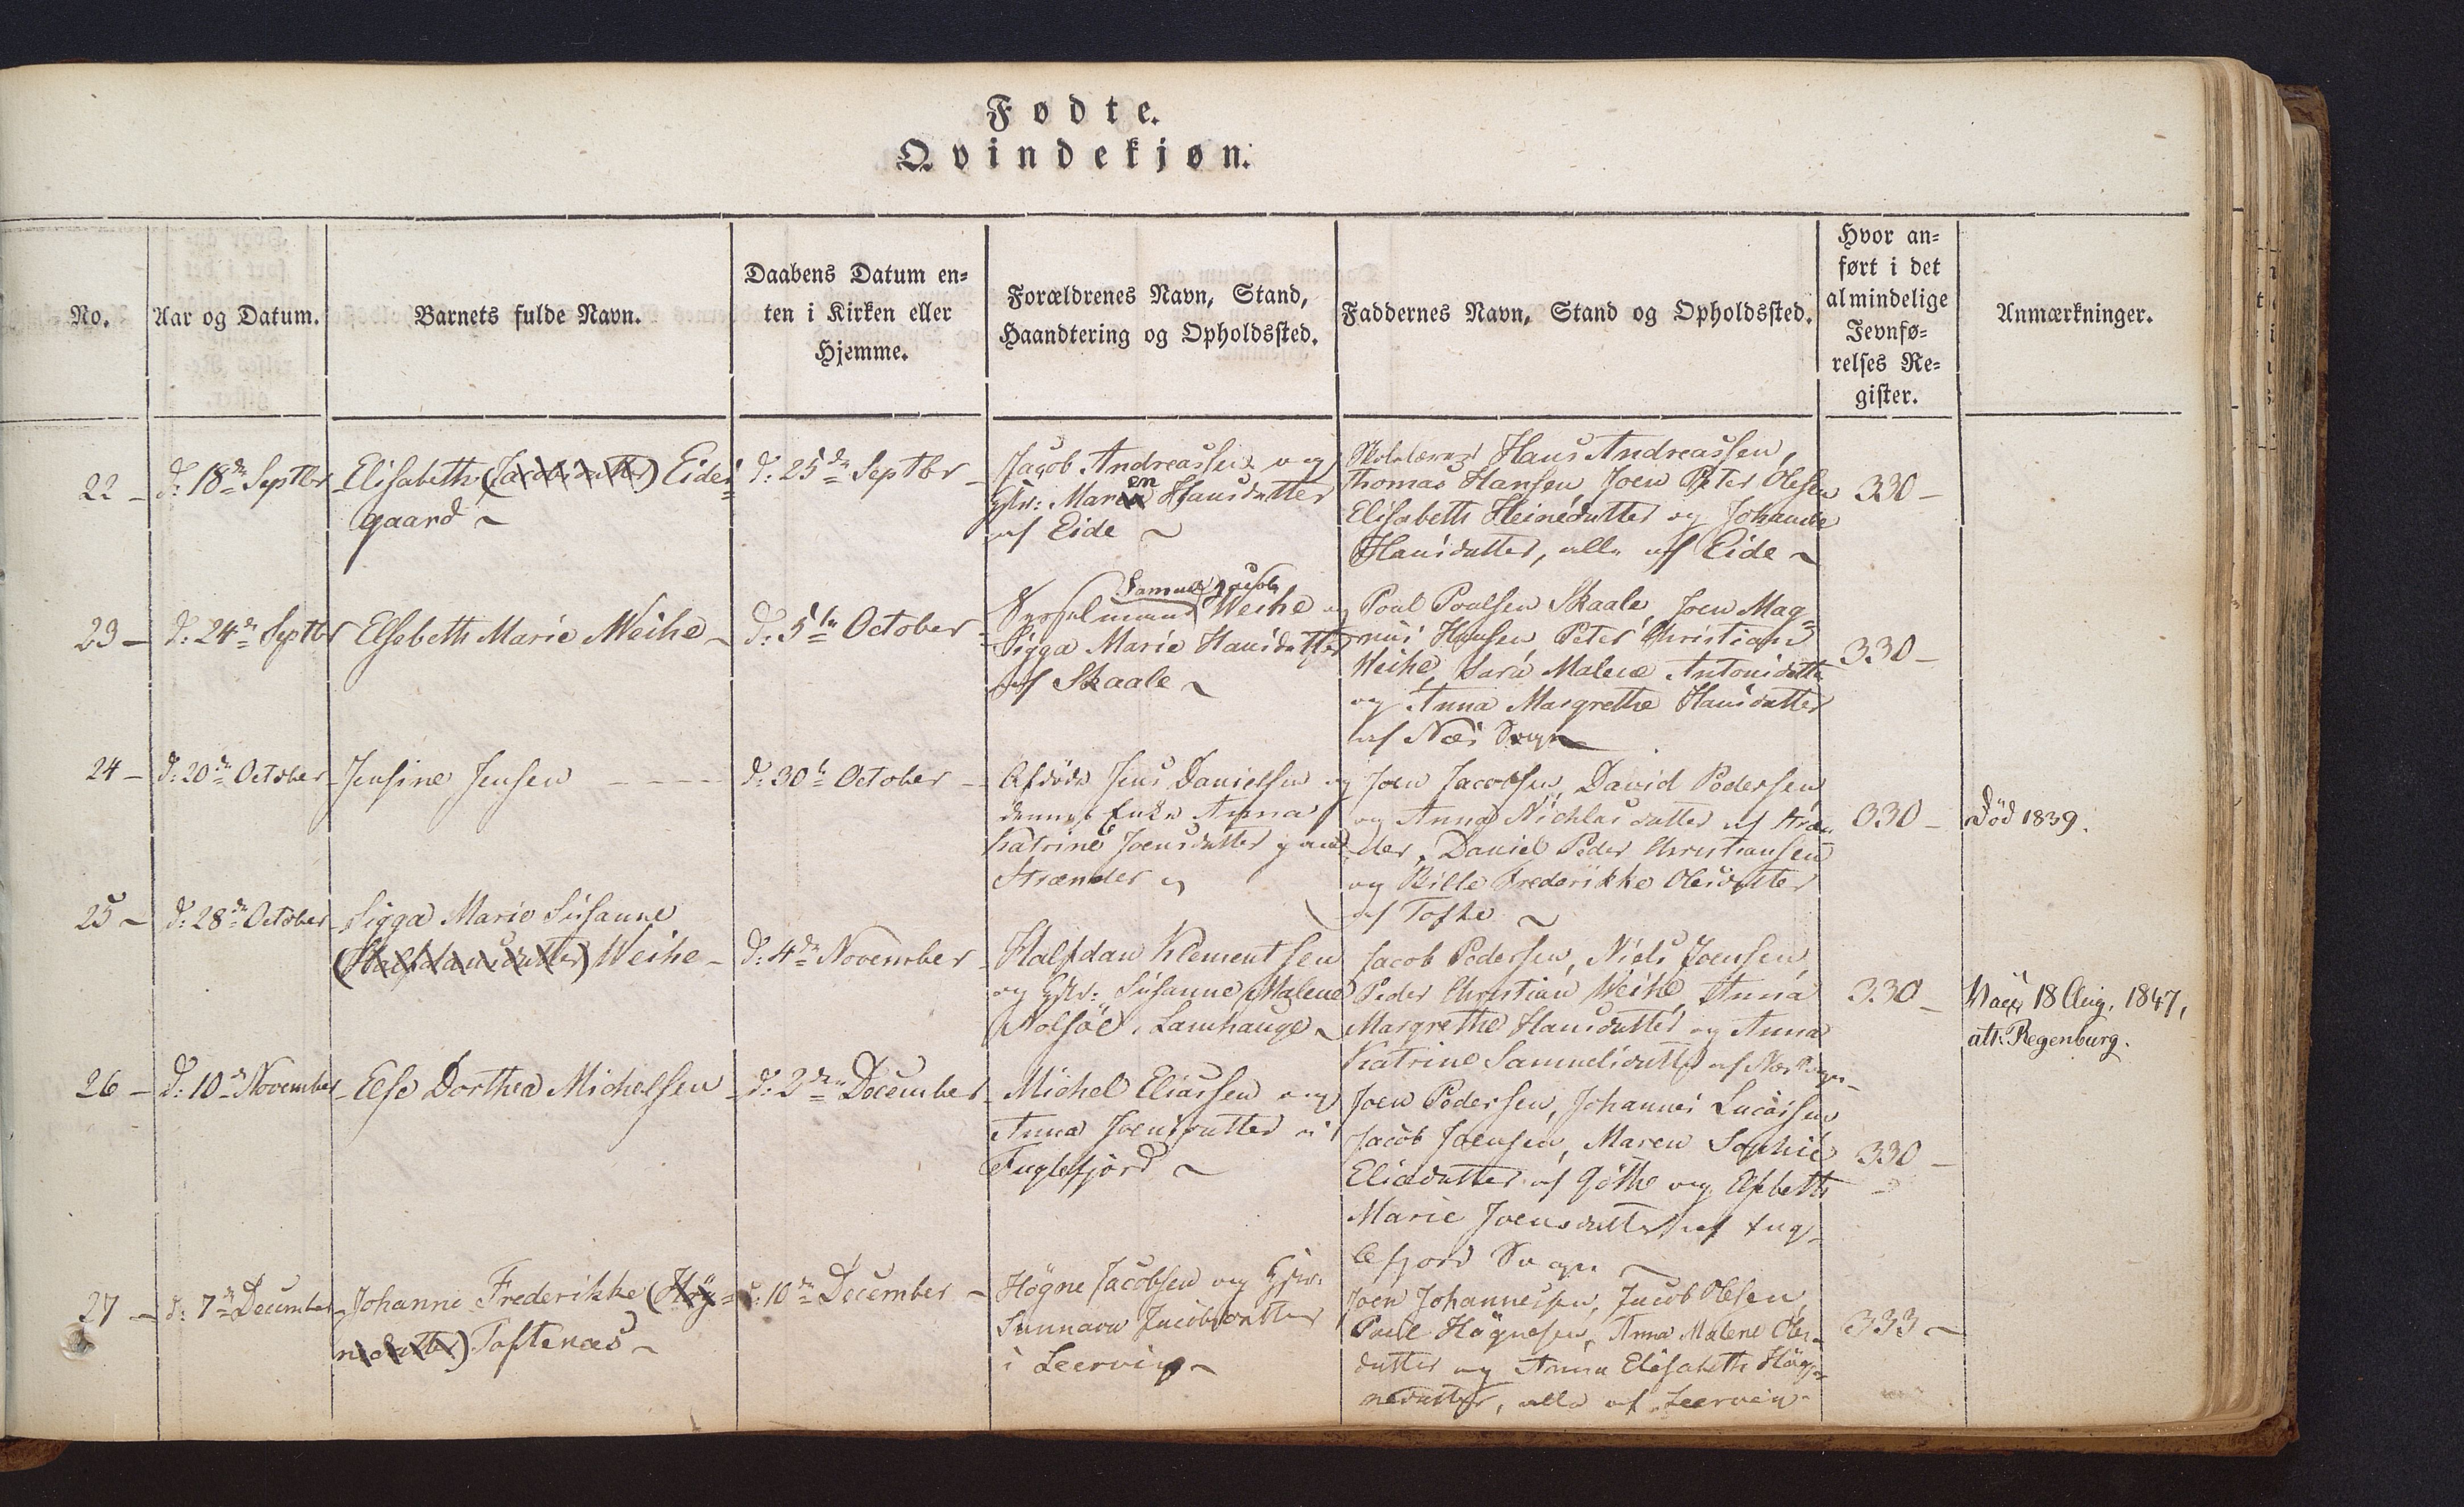 Fødte.
Qvindekjøn.
No.
Aar og Datum.
Barnets fulde Navn.
Daabens Datum en=
ten i Kirken eller
Hjemme.
Forældrenes Navn, Stand,
Haandtering og Opholdssted.
Faddernes Navn, Stand og Opholdssted.
Hvor an=
ført i det
almindelige
Jevnfø=
relses Re=
gister.
Anmærkninger.
22 -
d: 18de Septbr
Elisabeth (Jacobsdatter) Eides=
gaard
d: 25de Septbr
Jacob Andreassen og
Hstr: Maren Hansdatter
af Eide
Skolelærer Hans Andreassen,
Thomas Hansen, Joen Peter Olesen
Elisabeth Heinesdatter og Johanne
Hansdatter, alle af Eide
330 -
23 -
d: 24de Septbr
Elsebeth Marie Weihe
d: 5te October
Samuel Jacob
Weihe og
Sigga Marie Hansdatter
af Skaale
Poul Poulsen Skaale, Joen Mag=
nus Hansen, Peter Christian
Weihe, Sara Malene Antonisdatter
og Anna Margrethe Hansdatter
af Næs Sogn
330 -
24 -
d: 20de October
Jensine Jensen
d: 30te October
Afdøde Jens Danielsen og
dennes Enke Anna
Katrine Joensdatter paa
Strænder
Joen Jacobsen, David Pedersen
og Anna Nichlasdatter af Stræn=
der, Daniel Peder Christiansen
og Bille Frederikke Olesdatter
af Tofte
330 -
Död 1839.
25 -
d: 28de October
Sigga Marie Susanne
(Halfdansdatter) Weihe -
d: 4de November
Halfdan Klementsen
og Hstr: Susanne Malene
Nolsøe, Lamhauge
Jacob Pedersen, Niels Joensen
Peder Christian Weihe, Anna
Margrethe Hansdatter og Anna
Katrine Samuelsdatter af Næs Sogn
330 -
Vacc. 18 Aug. 1847,
att: Regenburg.
26 -
d: 10de November
Else Dorthea Michelsen
d: 2den December
Michel Eliassen og
Anna Joensdatter i
Fuglefjord
Joen Pedersen, Johannes Lucassen
Jacob Joensen, Maren Sophie
Eliasdatter af Göthe og Elsbeth
Marie Joensdatter af Fug=
lefjord Sogn
330 -
27 -
d: 7de December
Johanne Frederikke (Hög=
nesdatter) Toftenæs
d: 10de December
Högne Jacobsen og Hstr:
Sunnava Jacobsdatter
i Leervig
Joen Johannessen, Jacob Olesen
Poul Högnesen, Anna Malene Oles=
datter og Anna Elisabeth Hög=
nesdatter, alle af Leervig
333 -